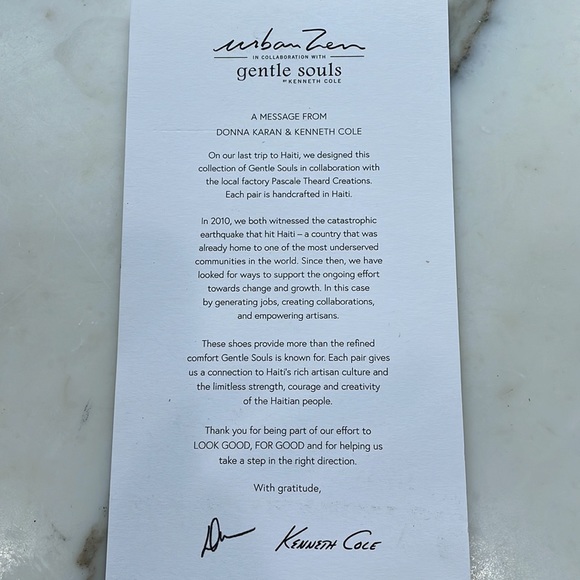 urban zen
IN COLLABORATION WITH
gentle souls
BY KENNETH COLE
A MESSAGE FROM
DONNA KARAN & KENNETH COLE
On our last trip to Haiti, we designed this
collection of Gentle Souls in collaboration with
the local factory Pascale Theard Creations.
Each pair is handcrafted in Haiti.
In 2010, we both witnessed the catastrophic
earthquake that hit Haiti – a country that was
already home to one of the most underserved
communities in the world. Since then, we have
looked for ways to support the ongoing effort
towards change and growth. In this case
by generating jobs, creating collaborations,
and empowering artisans.
These shoes provide more than the refined
comfort Gentle Souls is known for. Each pair gives
us a connection to Haiti's rich artisan culture and
the limitless strength, courage and creativity
of the Haitian people.
Thank you for being part of our effort to
LOOK GOOD, FOR GOOD and for helping us
take a step in the right direction.
With gratitude,
KENNETH COLE